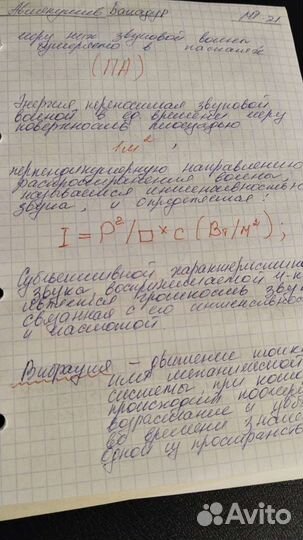 МР 21
звуковой волны
измеряется в паскалях
(ПА)
Энергия, переносимая звуковой
волной в ед времени через
поверхность площадью
1 м² ,
перпендикулярную направлению
распространения волны,
называется интенсивностью
звука, и определяется:
I = P²/□ × c (Вт/м²);
Субъективной характеристикой
звука, воспринимаемой
является громкость
связанная с его интенсивностью
и частотой
Вибрация – движение точки
или механической
системы, при
происходит
возрастание и
во времени
одной из
Avito